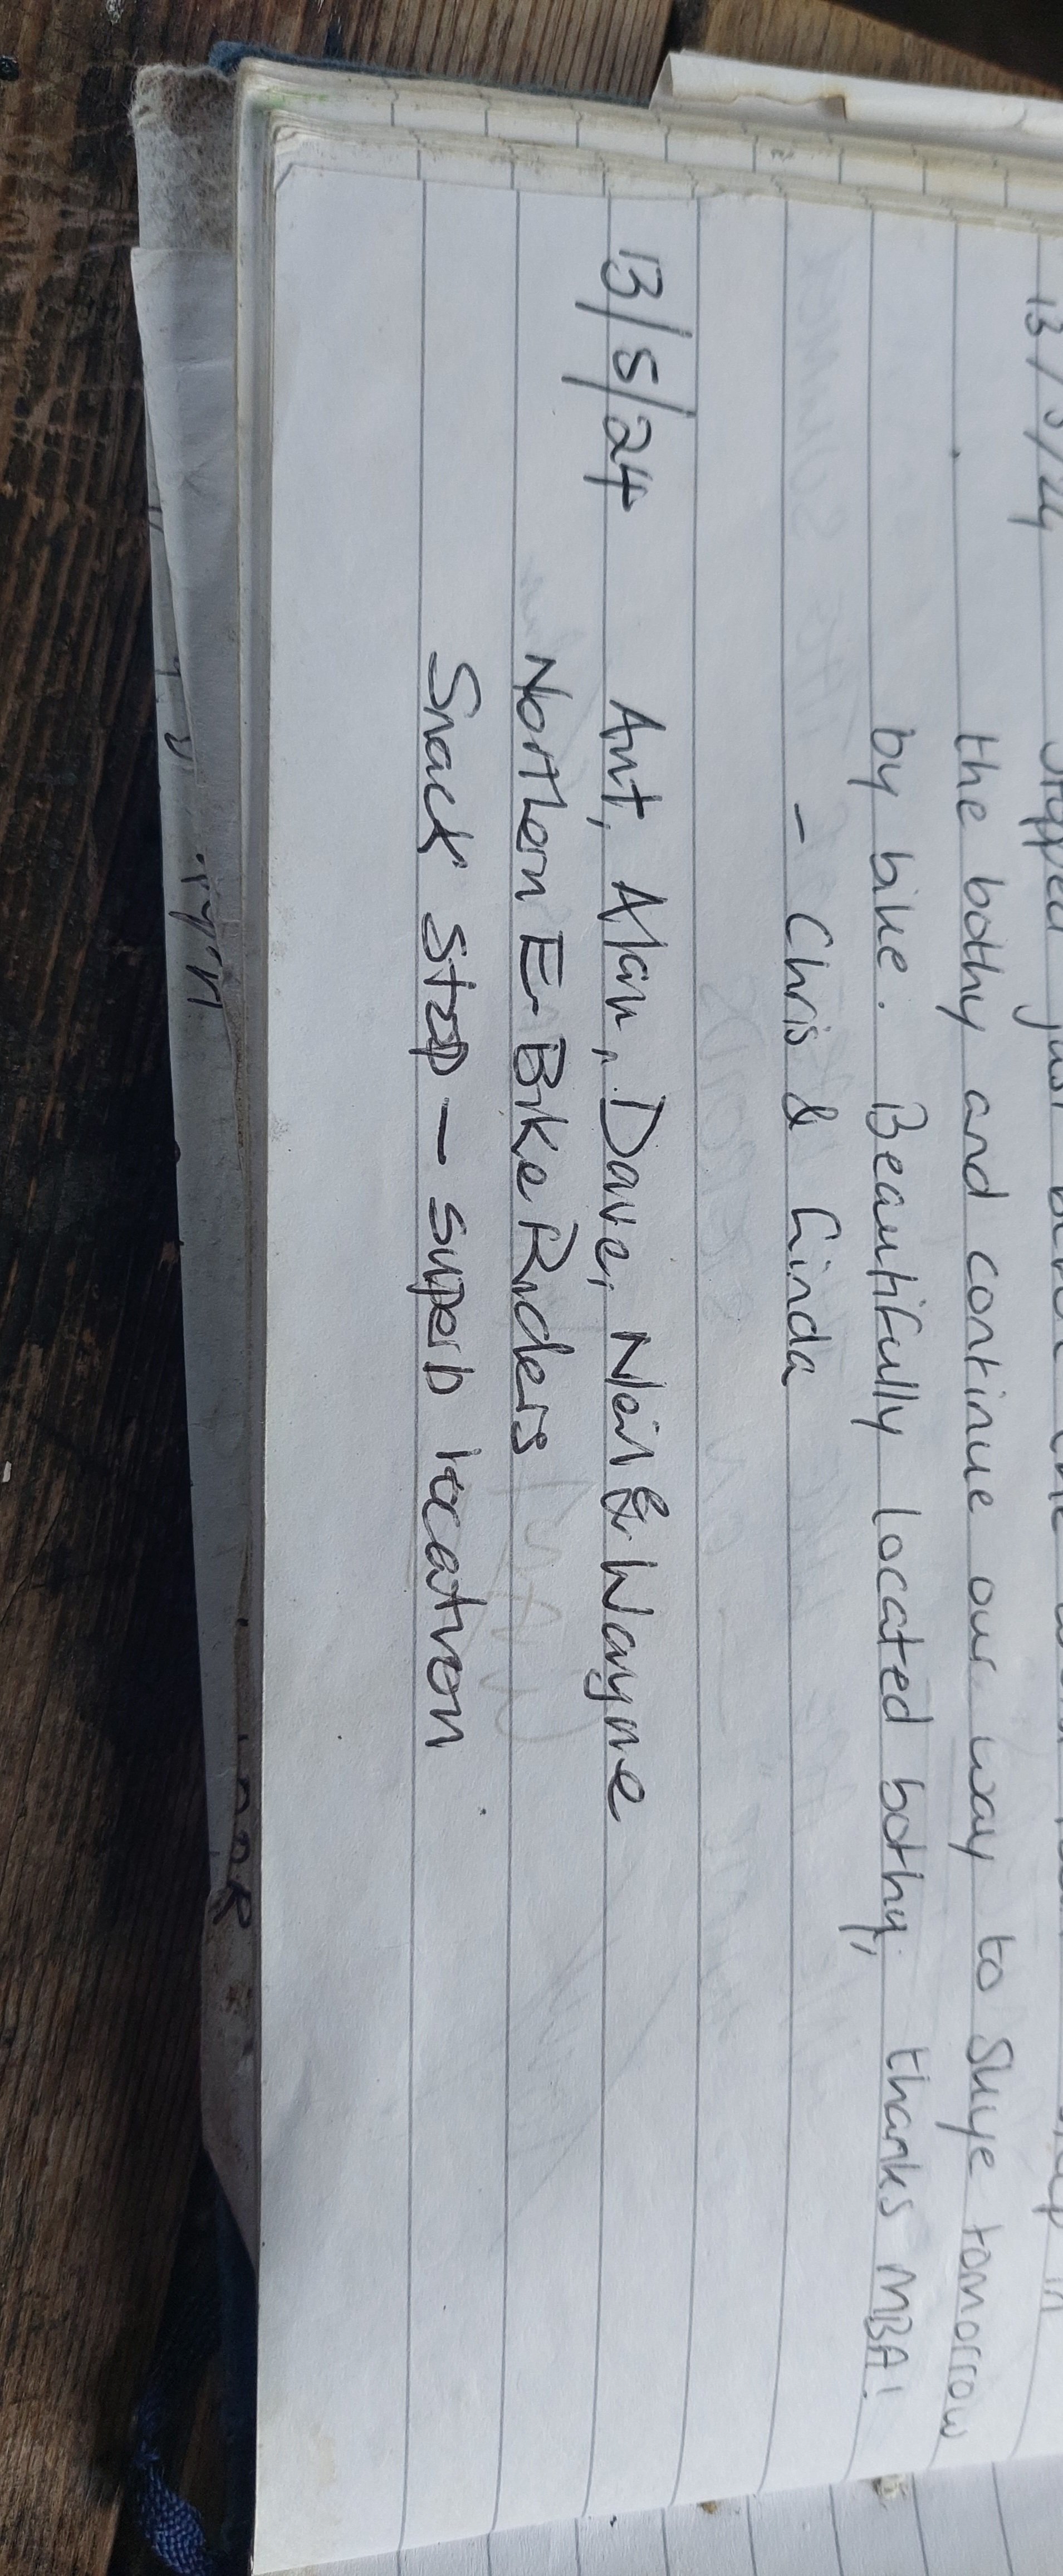 13/5/24
the bothy and continue our way to Skye tomorrow
by bike. Beautifully located bothy, thanks MBA!
- Chris & Linda
13/5/24 Ant, Alan, Dave, Neil & Wayne
Northern E-Bike Riders
Snack Stop - superb location